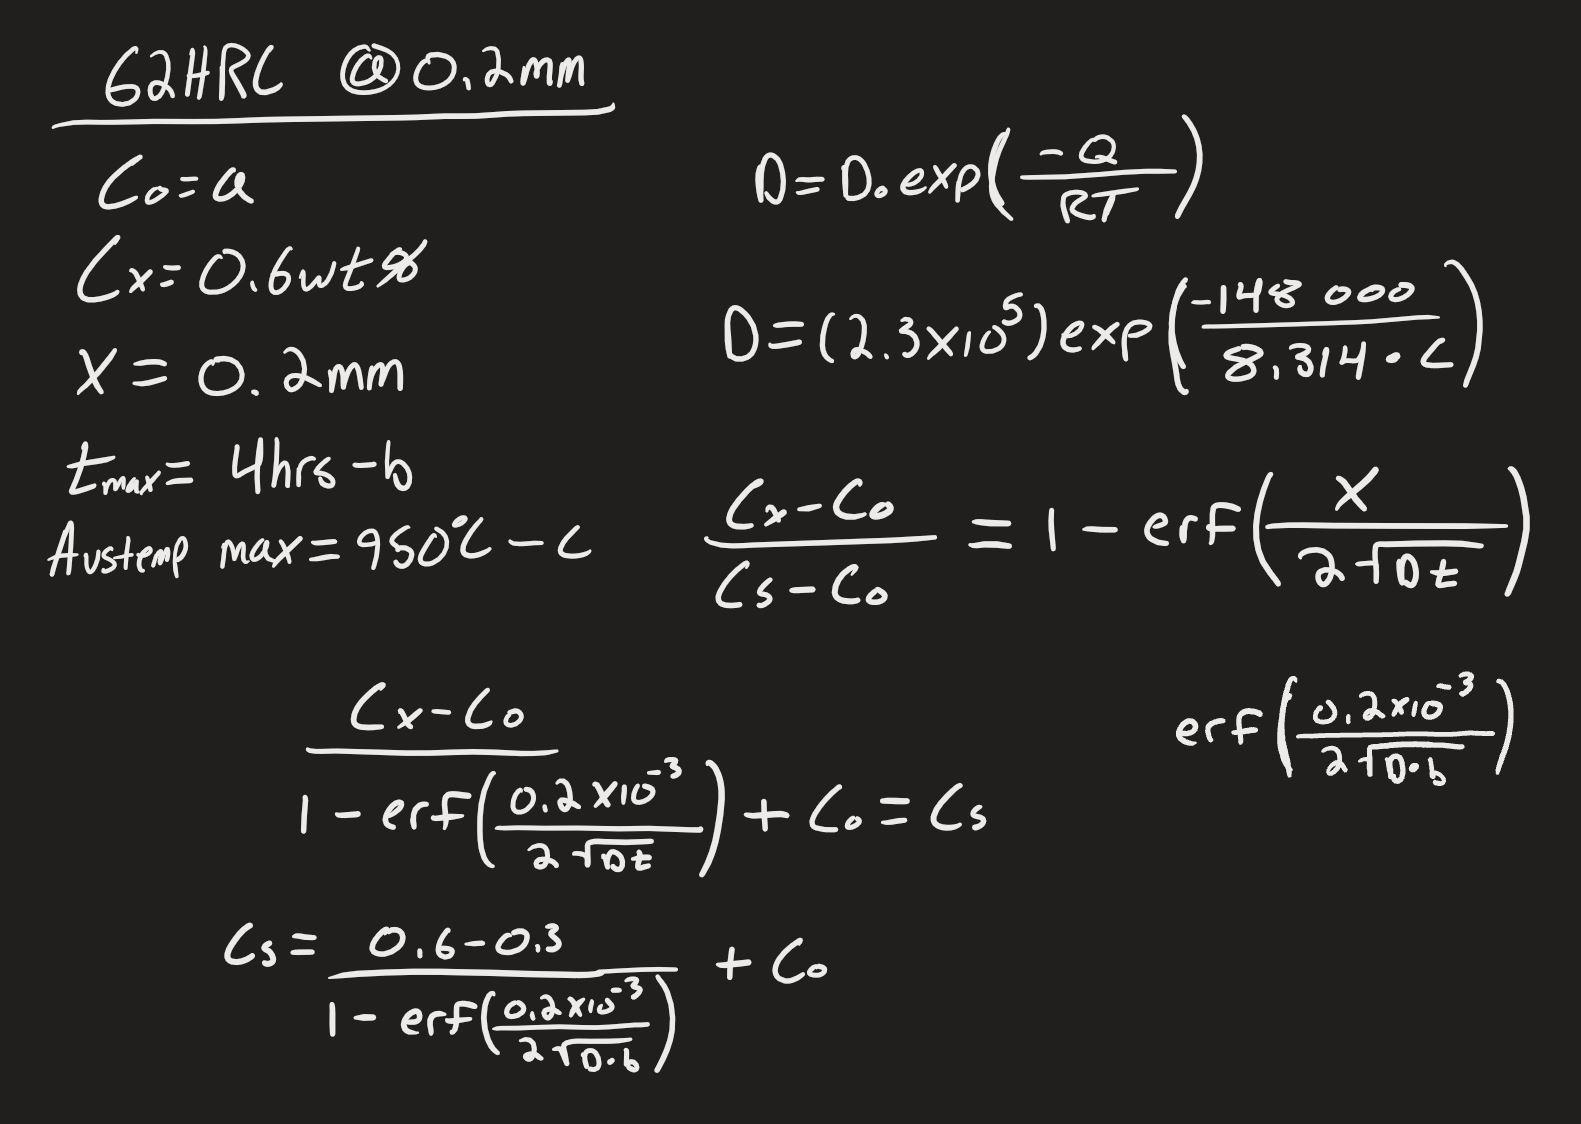 62HRC @ 0.2mm
C₀ = a
Cx = 0.6wt%
X = 0.2mm
t_max = 4hrs - b
Austemp max = 950°C - c
D = D₀ exp(-Q / RT)
D = (2.3×10⁵) exp(-148 000 / 8.314 · c)
(Cx - C₀) / (Cs - C₀) = 1 - erf(X / 2√Dt)
erf(0.2×10⁻³ / 2√D·b)
(Cx - C₀) / (1 - erf(0.2×10⁻³ / 2√Dt)) + C₀ = Cs
Cs = (0.6 - 0.3) / (1 - erf(0.2×10⁻³ / 2√D·b)) + C₀